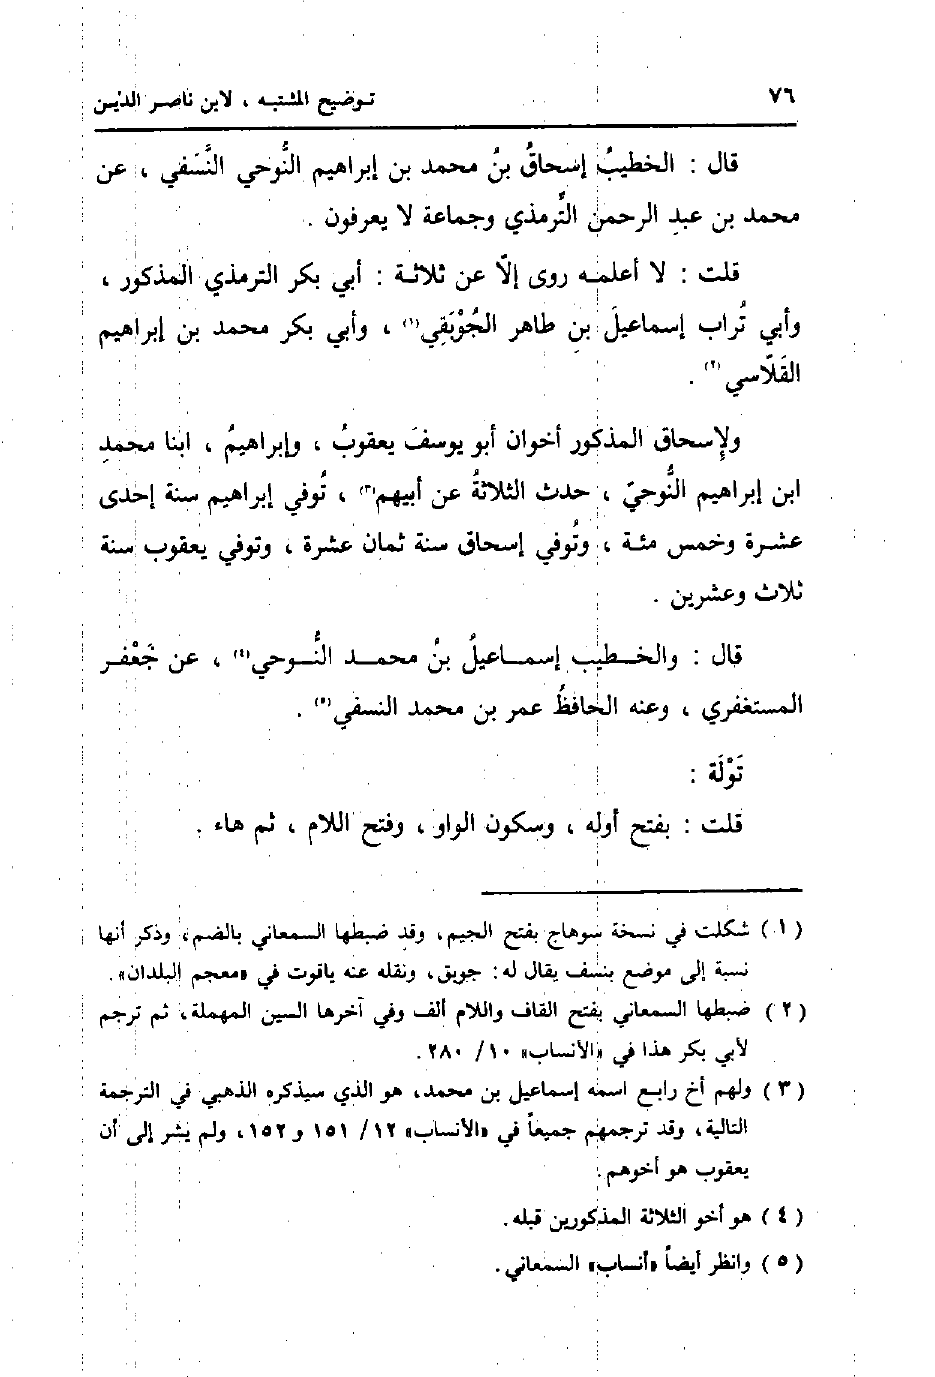 ٧٦ توضيح المشتبه ، لابن ناصر الدين
قال : الخطيبُ إسحاقُ بنُ محمد بن إبراهيم النُّوحي النَّسَفي ، عن
محمد بن عبدِ الرحمن التِّرمذي وجماعة لا يعرفون .
قلت : لا أعلمه روى إلّا عن ثلاثة : أبي بكر الترمذي المذكور ،
وأبي تُراب إسماعيلَ بنِ طاهر الجُوْبَقِي(١) ، وأبي بكر محمد بن إبراهيم
القَلّاسي(٢) .
ولإسحاق المذكور أخوان أبو يوسفَ يعقوبُ ، وإبراهيمُ ، ابنا محمدِ
ابن إبراهيم النُّوحيّ ، حدث الثلاثةُ عن أبيهم(٣) ، تُوفي إبراهيم سنة إحدى
عشرة وخمس مئة ، وتُوفي إسحاق سنة ثمان عشرة ، وتوفي يعقوب سنة
ثلاث وعشرين .
قال : والخطيب إسماعيلُ بنُ محمد النُّوحي(٤) ، عن جَعْفر
المستغفري ، وعنه الحافظُ عمر بن محمد النسفي(٥) .
تَوْلَة :
قلت : بفتح أوله ، وسكون الواو ، وفتح اللام ، ثم هاء .
(١) شكلت في نسخة سوهاج بفتح الجيم، وقد ضبطها السمعاني بالضم، وذكر أنها
نسبة إلى موضع بنسف يقال له: جوبق، ونقله عنه ياقوت في «معجم البلدان».
(٢) ضبطها السمعاني بفتح القاف واللام ألف وفي آخرها السين المهملة، ثم ترجم
لأبي بكر هذا في «الأنساب» ١٠/ ٢٨٠.
(٣) ولهم أخ رابع اسمه إسماعيل بن محمد، هو الذي سيذكره الذهبي في الترجمة
التالية، وقد ترجمهم جميعاً في «الأنساب» ١٢/ ١٥١ و ١٥٢، ولم يشر إلى أن
يعقوب هو أخوهم.
(٤) هو أخو الثلاثة المذكورين قبله.
(٥) وانظر أيضاً «أنساب» السمعاني.